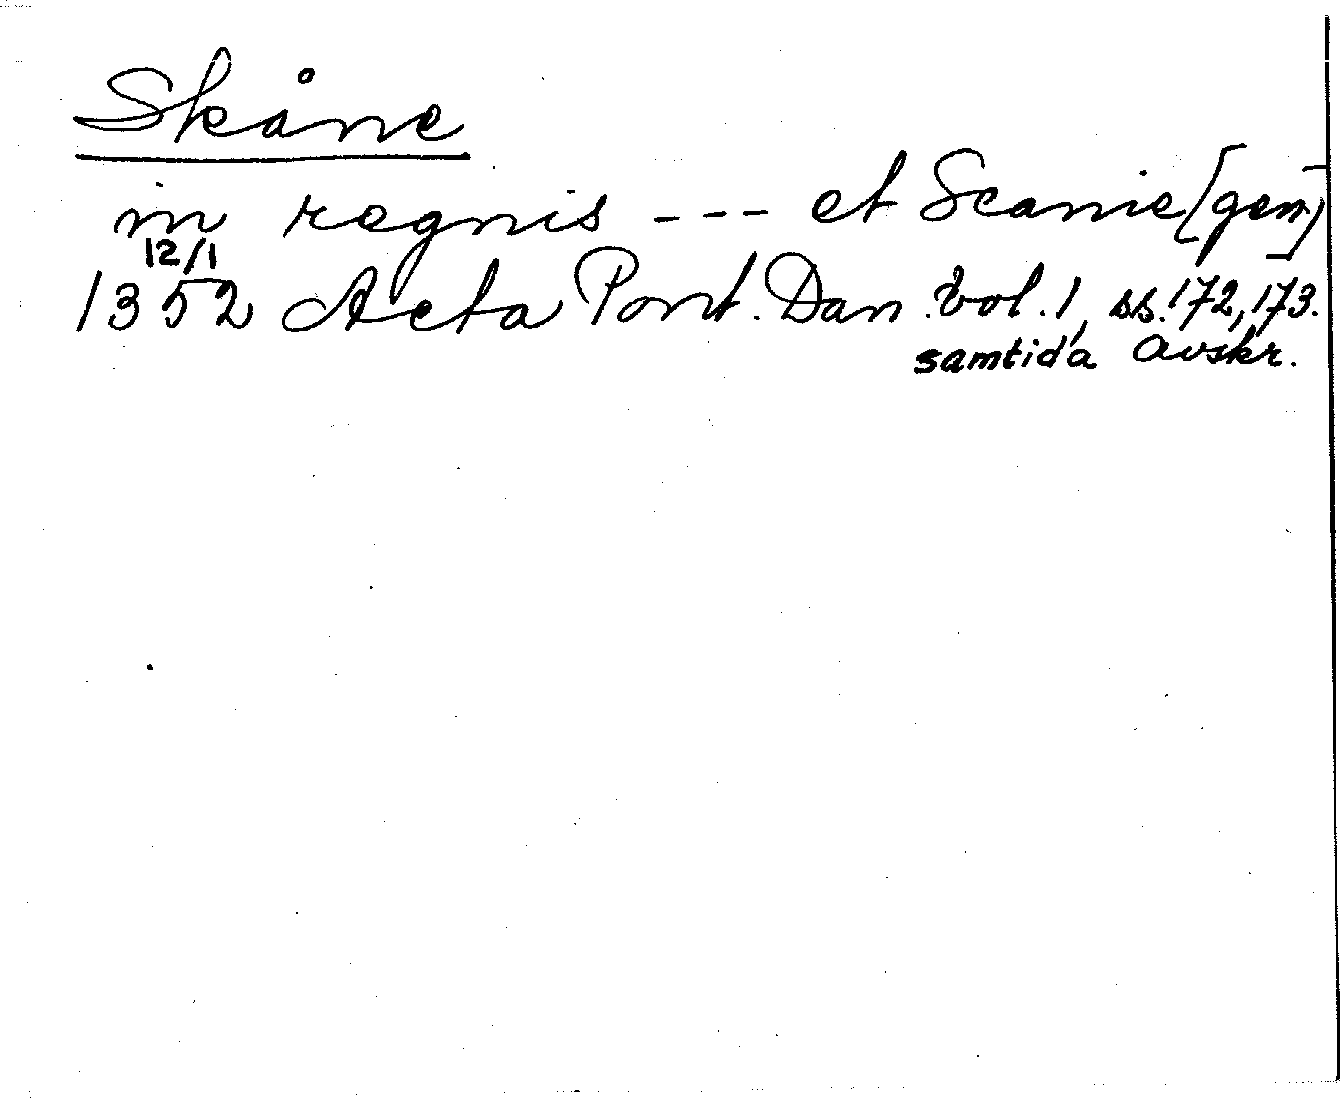 Skåne
in regnis --- et Scanie [gen]
12/1
1352 Acta Pont. Dan. vol. 1, ss. 172, 173.
samtida avskr.